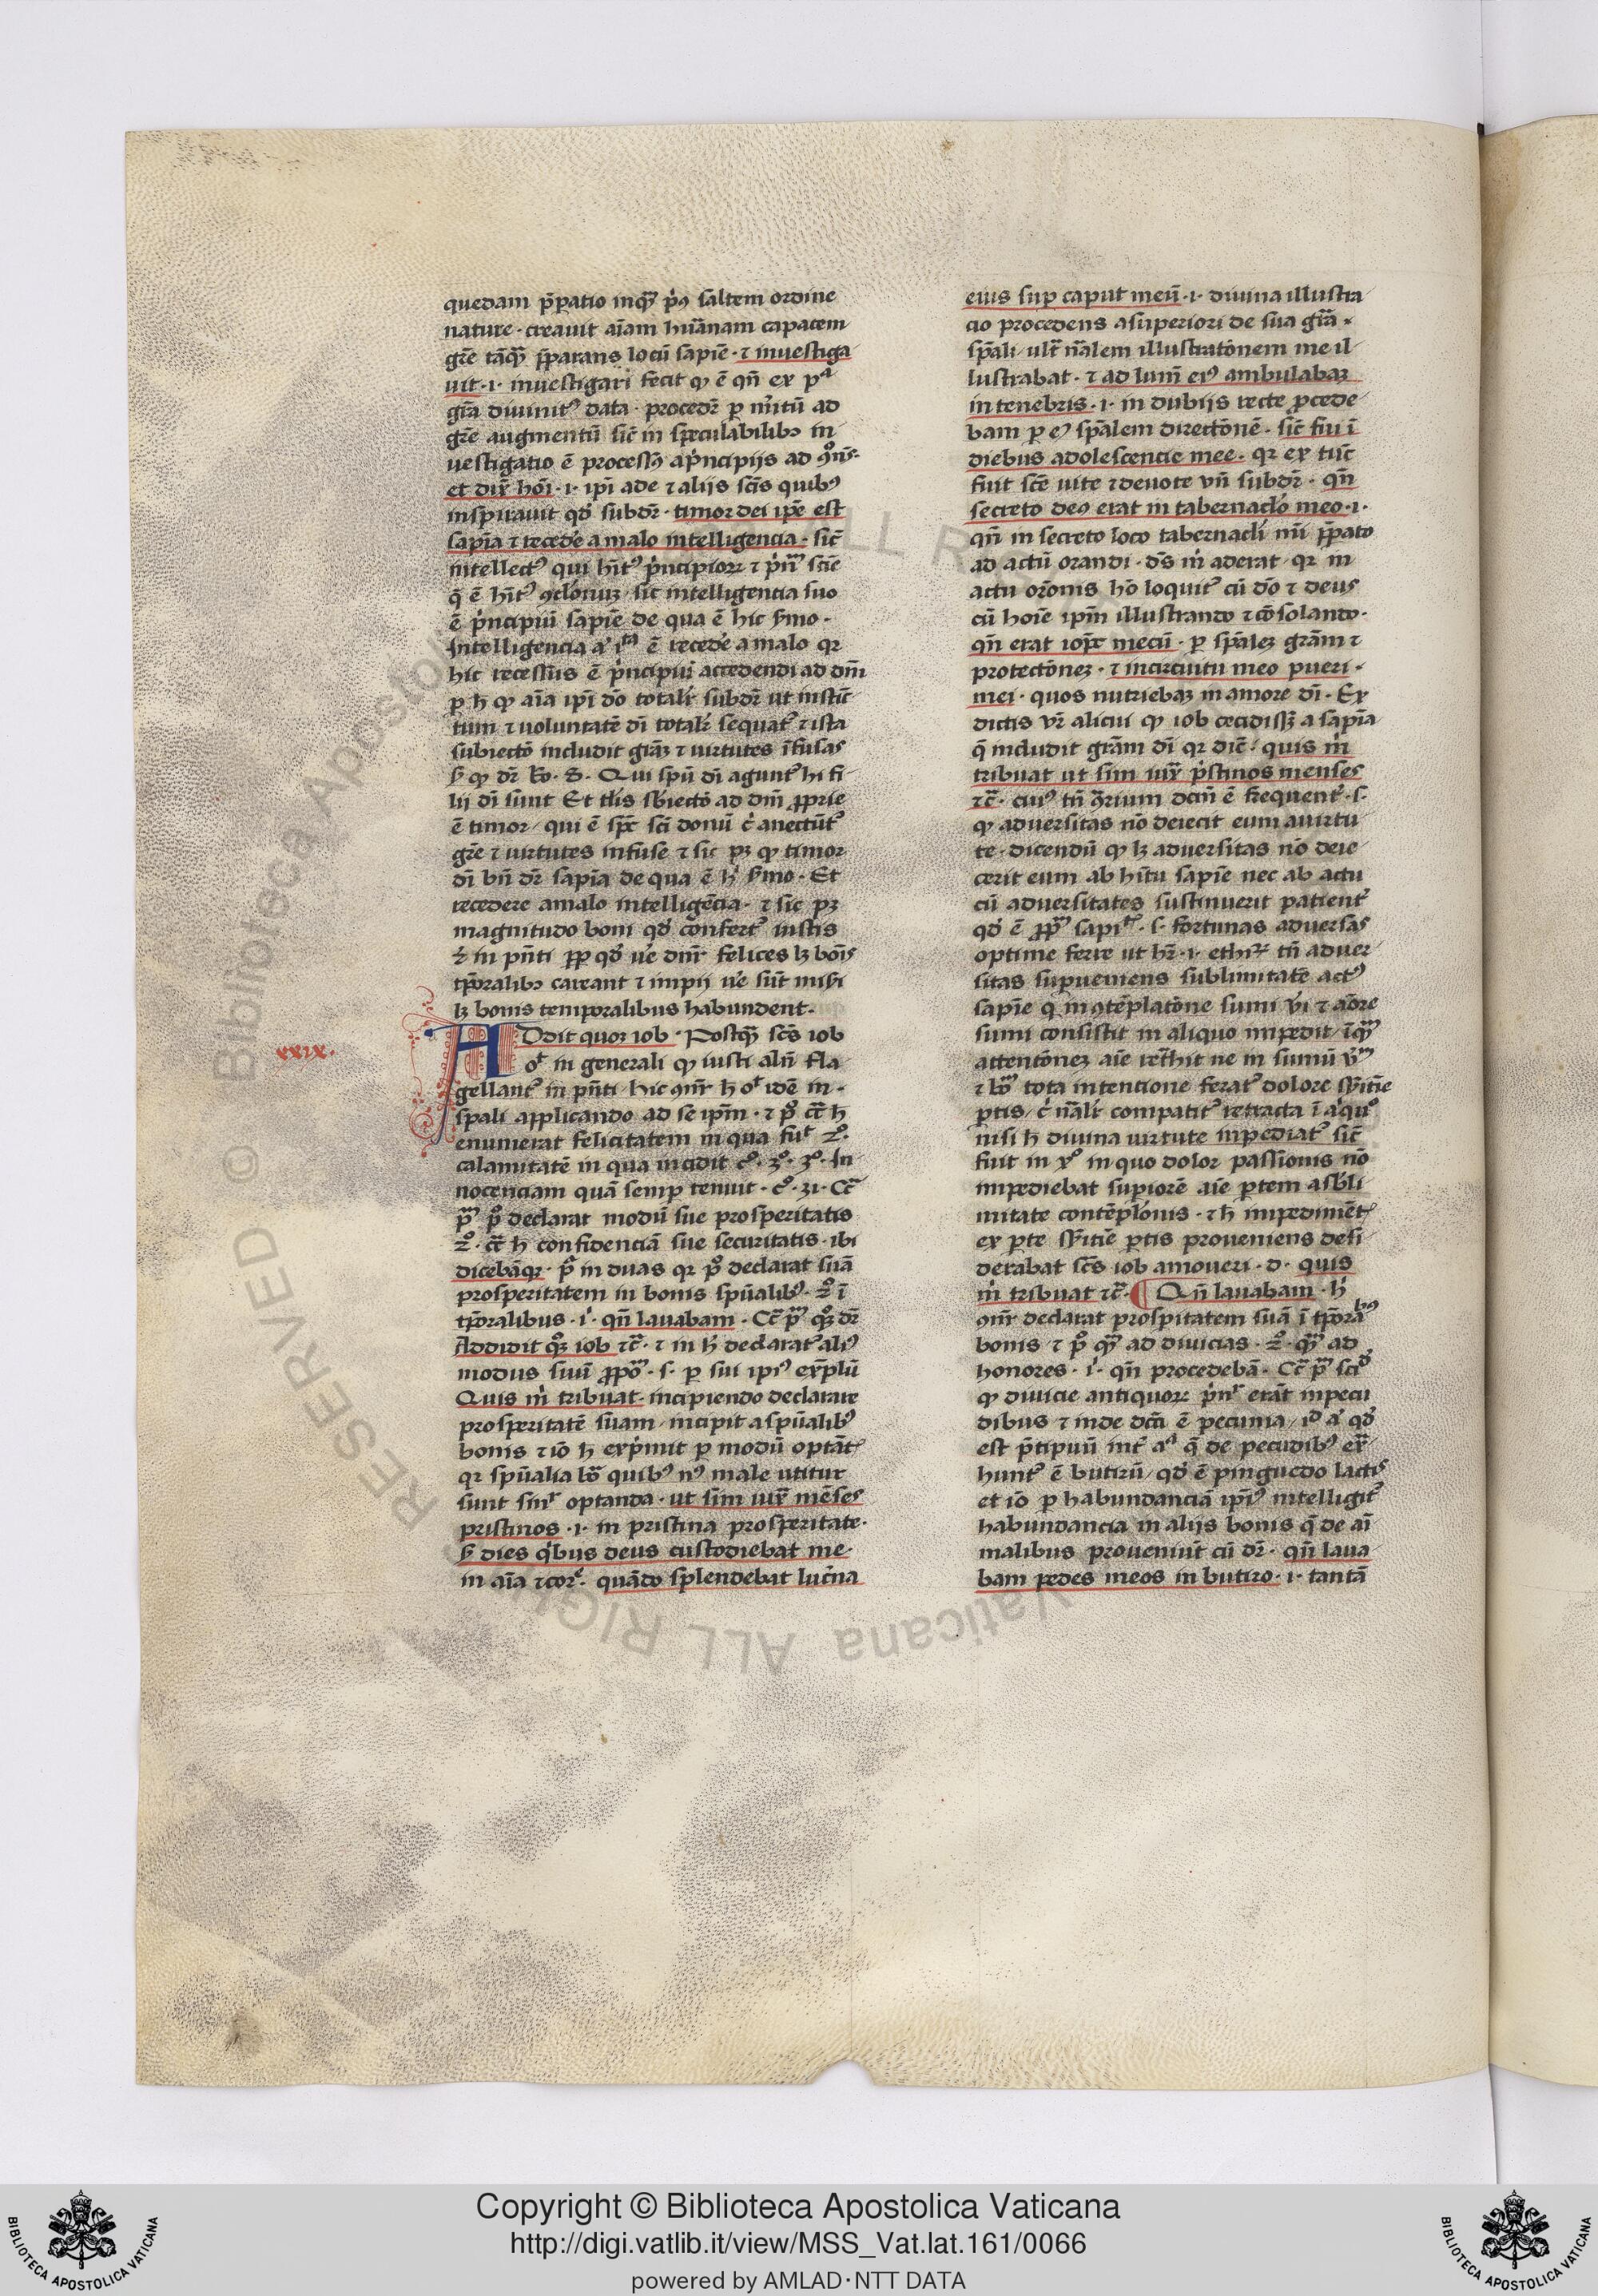 quedam p̄patio inq̄ȝ p̓ꝯ saltem ordine
nature · creauit aīam huānam capacem
gr̄e tāq̄ȝ p̄parans locū sapīe · ⁊ inuestiga
uit · i · inuestigari fecit ꝙ ē qn̄ ex pᵃ
gr̄a diuinitꝰ data · procedr̄ ꝑ m̓itū ad
gr̄e augmentū sic̄ in speculabilibꝫ in
uestigatio ē processꝰ a p̓ncipijs ad ꝯⁿes ·
et dix̄ hoī · i · ipī ade ⁊ alijs sc̄is quibꝰ
inspirauit qd̓ subdr̄ · timor dei ip̄e est
sapīa ⁊ recede̓ a malo intelligencia · sic̄
intellectꝰ qui hītꝰ p̓ncipioꝝ ⁊ p̓nᵐ scīe
q̄ ē hītꝰ ꝯclōnuꝫ · sic intelligencia suo
ē p̓ncipiū sapīe de qua ē hic s̓mo ·
Intelligencia aʳ iᵗᵃ ē recede̓ a malo qꝛ
hic recessus ē p̓ncipiū accedendi ad dm̄
ꝑ h̄ ꝙ aīa ipī dō totalr̄ subdr̄ ut instīc
tum ⁊ uoluntatē dī totalr̄ sequatʳ ⁊ ista
subiectō includit grāꝫ ⁊ uirtutes īfusas
s̄ ꝙ dr̄ Ro · 8 · Qui spū dī aguntʳ hi fi
lij dī sunt Et tl̄is sb̓iectō ad dm̄ ꝓprie
ē timor / qui ē spc̄ sci donū c̓ anectūtʳ
gr̄e ⁊ uirtutes infuse ⁊ sic pꝫ ꝙ timor
dī bn̄ dr̄ sapīa de qua ē h̓ s̓mo · Et
recedere a malo intelligēcia · ⁊ sic pꝫ
magnitudo boni qd̓ confertʳ iustis
⁊ in pn̄ti ꝓp qd̓ ue̓ dnr̄ felices lꝫ bonīs
tp̄oralibꝫ careant ⁊ impij ue̓ sūt mis̓i
lꝫ bonis temporalibus habundent ·
xxix ·
ADdit quoꝫ iob · Postq̄ȝ sc̄s iob
oᵗ in generali ꝙ iusti aln̄ fla
gellantʳ in pn̄ti / hic ꝯnr̄ h̄ oᵗ idē in ·
spali applicando ad se ip̄m · ⁊ pº cc̄ h̄
enumerat felicitatem in qua fuᵗ 2º ·
calamitatē in qua incidit cº · 30 · 3º · In
nocenciam quā semp tenuit · cº · 31 · Cc̄
pᵐ pº declarat modū sue prosperitatis
2º · cc̄ h̄ confidenciā sue securitatis · ibi
dicebāqꝛ · pº in duas qꝛ pº declarat suā
prosperitatem in bonis spūalibꝰ · 2º ī
tp̄oralibus · i̓ · qn̄ lauabam · Cc̄ pᵐ qꝫ dr̄
Addidit qꝫ iob ⁊c̄ · ⁊ in h̓ declaratʳ aliꝰ
modus suū ꝓpōᵐ · s · ꝑ sui ipiꝰ exp̄lū
Quis m̓ tribuat · incipiendo declarare
prosperitatē suam / incipit a spūalibꝰ
bonis ⁊ iō h̄ exp̓mit ꝑ modū optātʳ
qꝛ spūalia bōᵃ quibꝰ nꝰ male utitur
sunt sinʳ optanda · ut sim iux̄ mēses
pristinos · i · in pristina prosperitate ·
s̄ dies q̓bus deus custodiebat me ·
in aīa ⁊ corᵉ · quādo splendebat luc̓na
eius sup caput meū · i · diuina illustra
cio procedens a superiori de sua gr̄a ·
sp̄ali / ultᵃ nālem illustratōnem me il
lustrabat · ⁊ ad lum̄ eiꝰ ambulabaꝫ
in tenebris · i · in dubijs recte ꝓcede
bam ꝑ eꝰ sp̄alem directōnē · sic̄ fui ī
diebus adolescencie mee · qꝛ ex tūc
fuit sc̄e uite ⁊ deuote un̄ subdr̄ · qn̄
secreto deꝰ erat in tabernaclo̓ meo · i ·
qn̄ in secreto loco tabernacli̓ mī p̄pato
ad actū orandi · ds̄ m̓ aderat · qꝛ in
actu orōnis hō loquitʳ cū dō ⁊ deus
cū hoīe ip̄m illustrando ⁊ cōsolando ·
qn̄ erat iop̄c mecū · ꝑ sp̄aleꝫ grām ⁊
protectōneꝫ · ⁊ in circuitu meo pueri ·
mei · quos nutriebaꝫ in amore dī · Ex
dictis ur̄ alicui ꝙ iob cecidisꝫ a sapīa
q̄ includit grām dī qꝛ dic̄ · quis m̓
tribuat ut sim iux̄ p̓stinos menses
⁊c̄ · cuiꝰ tn̄ ꝯᵃrium dcm̄ ē frequentʳ · s ·
ꝙ aduersitas nō deiecit eum a uirtu
te · dicendū ꝙ lꝫ aduersitas nō deie
cerit eum ab hītu sapīe nec ab actu
cū aduersitates sustinuerit patientʳ
qd̓ ē ꝓpᵐ sapiᵗⁱˢ · s · fortunas aduersas
optime ferre ut hr̄ · i · ethiꝝ tn̄ aduer
sitas supueniens sublimitatē actꝰ
sapīe q̄ in ꝯtēplatōne sumi u̓i ⁊ aōre
sumi consistit in aliquo impedit / īq̄ȝ
attentōneꝫ aīe ret̓hit ne in sumū u̓ᵐ
⁊ bōᵐ tota intencione feratʳ dolore sn̄itīe
ꝑtis / c̓ nālr̄ compatitʳ retracta ī aʳquº
nisi h̄ diuina uirtute inpediatʳ sic̄
fuit in xº in quo dolor passionis nō
impediebat supiorē aīe ꝑtem a sb̓li
mitate contēplōnis · ⁊ h̄ impedimētʳ
ex ꝑte sn̄itīe ꝑtis proueniens desi
derabat sc̄s iob amoueri · d · quis
m̓ tribuat ⁊c̄ · ¶ Qn̄ lauabam · h̓
ꝯnr̄ declarat prosp̄itatem suā ī tp̄oraᵇꝰ
bonis ⁊ pº qᵐ ad diuicias · 2º · qᵐ ad
honores · i̓ · qn̄ procedebā · Cc̄ pᵐ scid̓
ꝙ diuicie antiquoꝝ p̓nʳ erāt in pecu
dibus ⁊ inde dcā ē pecunia / iᵈ aʳ qd̓
est p̄cipuū int̓ aᵃ q̄ de pecudibꝰ ex̄
huntʳ ē butirū / qd̓ ē pinguedo lactis
et iō ꝑ habundanciā ip̄iꝰ intelligitʳ
habundancia in alijs bonis q̄ de aī
malibus proueniūt cū dr̄ · qn̄ laua
bam pedes meos in butiro · i · tantā
Copyright © Biblioteca Apostolica Vaticana
http://digi.vatlib.it/view/MSS_Vat.lat.161/0066
powered by AMLAD·NTT DATA